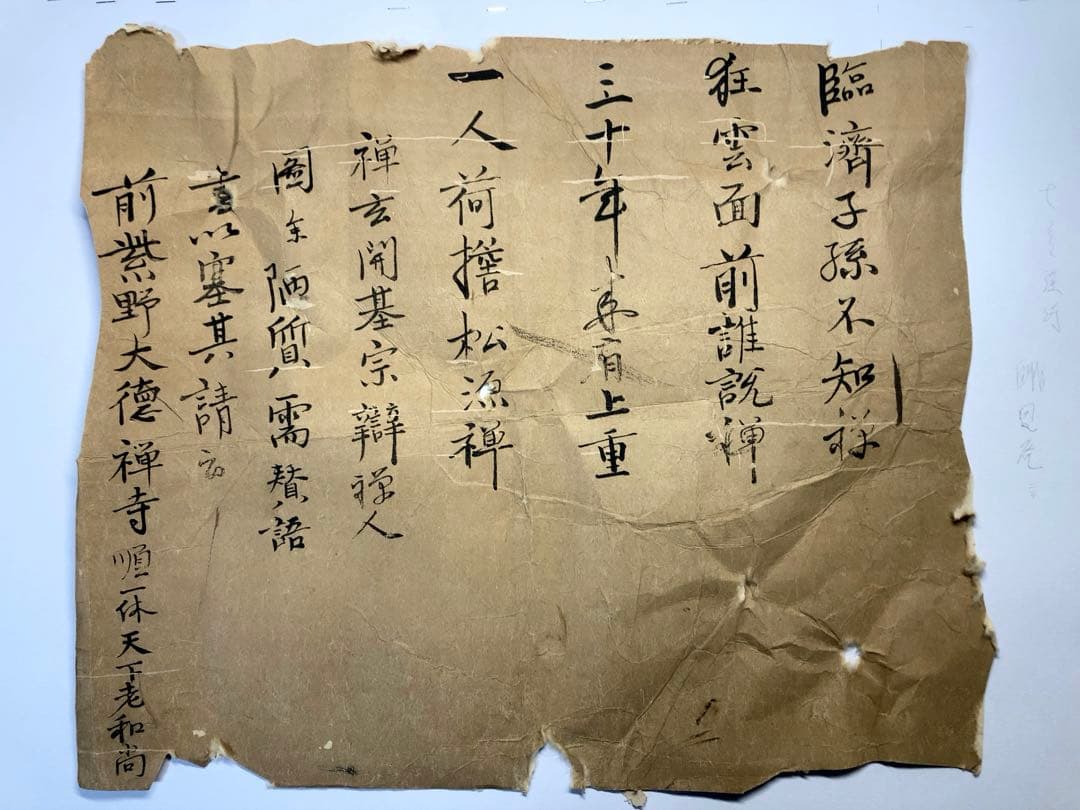 臨濟子孫不知禅
狂雲面前誰說禅
三十年来肩上重
一人荷擔松源禅
禅玄開基宗辯禅人
圖余陋質需賛語
書以塞其請云
前紫野大德禅寺順一休天下老和尚